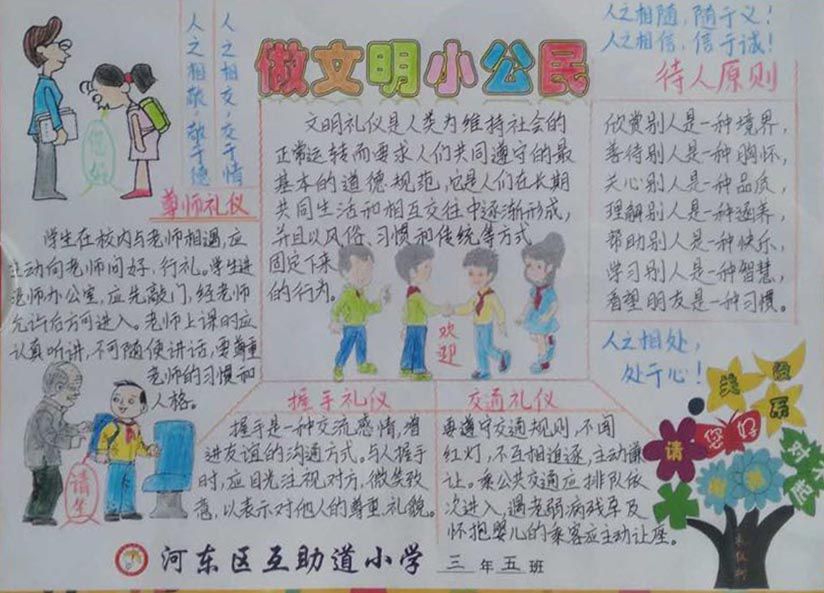 做文明小公民
人之相交,交于情
人之相敬,敬于德
您好
尊师礼仪
学生在校内与老师相遇,应
主动向老师问好、行礼。学生进
老师办公室,应先敲门,经老师
允许后方可进入。老师上课时应
认真听讲,不可随便讲话,要尊重
老师的习惯和
人格。
请坐
文明礼仪是人类为维持社会的
正常运转而要求人们共同遵守的最
基本的道德规范,它是人们在长期
共同生活和相互交往中逐渐形成,
并且以风俗、习惯和传统等方式
固定下来
的行为。
欢迎
人之相随,随于义!
人之相信,信于诚!
待人原则
欣赏别人是一种境界,
善待别人是一种胸怀,
关心别人是一种品质,
理解别人是一种涵养,
帮助别人是一种快乐,
学习别人是一种智慧,
看望朋友是一种习惯。
人之相处,
处于心!
握手礼仪
握手是一种交流感情,增
进友谊的沟通方式。与人握手
时,应目光注视对方,微笑致
意,以表示对他人的尊重、礼貌。
交通礼仪
要遵守交通规则,不闯
红灯,不互相追逐,主动谦
让。乘公共交通应排队依
次进入,遇老弱病残孕及
怀抱婴儿的乘客应主动让座。
请
您好
对不起
河东区互助道小学 三年五班